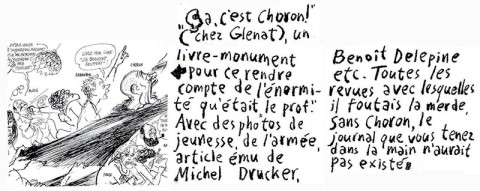 CHORON
"Ça, c'est Choron!"
(chez Glenat), un
livre-monument
pour ce rendre
compte de l'énormi-
té qu'était le prof!"
Avec des photos de
jeunesse, de l'armée,
article ému de
Michel Drucker,
Benoît Delepine
etc. Toutes les
revues avec lesquelles
il foutais la merde.
Sans Choron, le
journal que vous tenez
dans la main n'aurait
pas existé